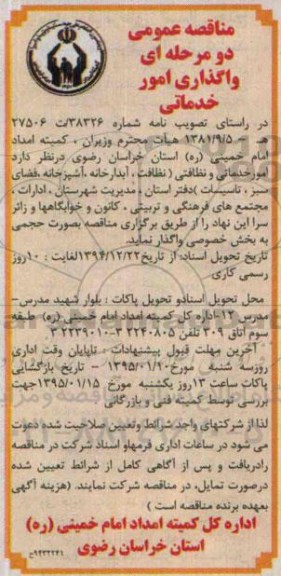 مناقصه عمومی
دو مرحله ای
واگذاری امور
خدماتی
در راستای تصویب نامه شماره ۳۸۳۲۶/ت ۲۷۵۰۶
هـ - ۱۳۸۱/۹/۵ هیأت محترم وزیران ، کمیته امداد
امام خمینی (ره) استان خراسان رضوی درنظر دارد
امورخدماتی و نظافتی ( نظافت ، آبدارخانه ،آشپزخانه ،فضای
سبز ، تاسیسات )دفتر استان ، مدیریت شهرستان ، ادارات ،
مجتمع های فرهنگی و تربیتی ، کانون و خوابگاهها و زائر
سرا این نهاد را از طریق برگزاری مناقصه بصورت حجمی
به بخش خصوصی واگذار نماید.
تاریخ تحویل اسناد: از تاریخ ۱۳۹۴/۱۲/۲۲ لغایت : ۱۰روز
رسمی کاری
محل تحویل اسنادو تحویل پاکات : بلوار شهید مدرس-
مدرس ۱۲-اداره کل کمیته امداد امام خمینی (ره) طبقه
سوم اتاق ۳۰۹ تلفن ۳۲۲۴۰۸۰۵ ۳-۳۲۲۳۹۰۱۰
آخرین مهلت قبول پیشنهادات : تاپایان وقت اداری
روزسه شنبه مورخ ۱۳۹۵/۰۱/۱۰ - تاریخ بازگشایی
پاکات ساعت ۱۳روز یکشنبه مورخ ۱۳۹۵/۰۱/۱۵ جهت
بررسی توسط کمیته فنی و بازرگانی
لذا از شرکتهای واجد شرائط وتعیین صلاحیت شده دعوت
می شود در ساعات اداری فرمهاو اسناد شرکت در مناقصه
رادریافت و پس از آگاهی کامل از شرائط تعیین شده
درصورت تمایل، در مناقصه شرکت نمایند. (هزینه آگهی
بعهده برنده مناقصه است )
اداره کل کمیته امداد امام خمینی (ره)
استان خراسان رضوی